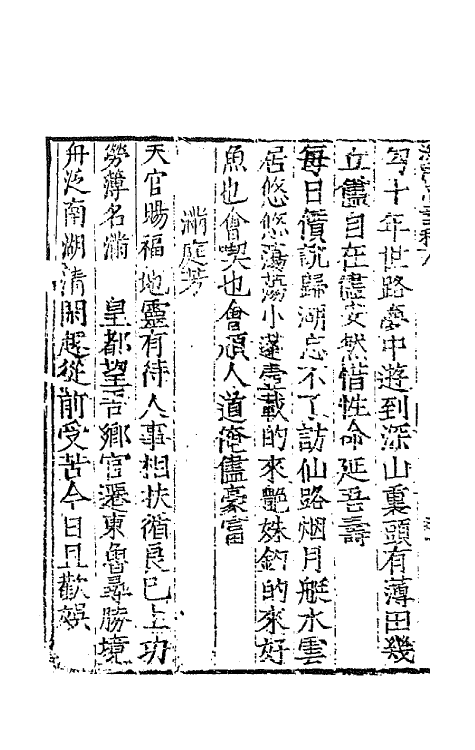 匃十年世路夢中遊到深山裏頭有薄田幾
立儘自在儘安然惜性命延吾壽
每日價說歸湖忘不了訪仙路烟月艇水雲
居悠悠蕩蕩小蓬壺載的來艶姝釣的來好
魚也會喫也會頑人道俺儘豪富
滿庭芳
天官賜福地靈有待人事相扶循良已上功
勞簿名滿 皇都望吾鄉官遷東魯尋勝境
舟泛南湖清閑趣從前受苦今日且歡娛